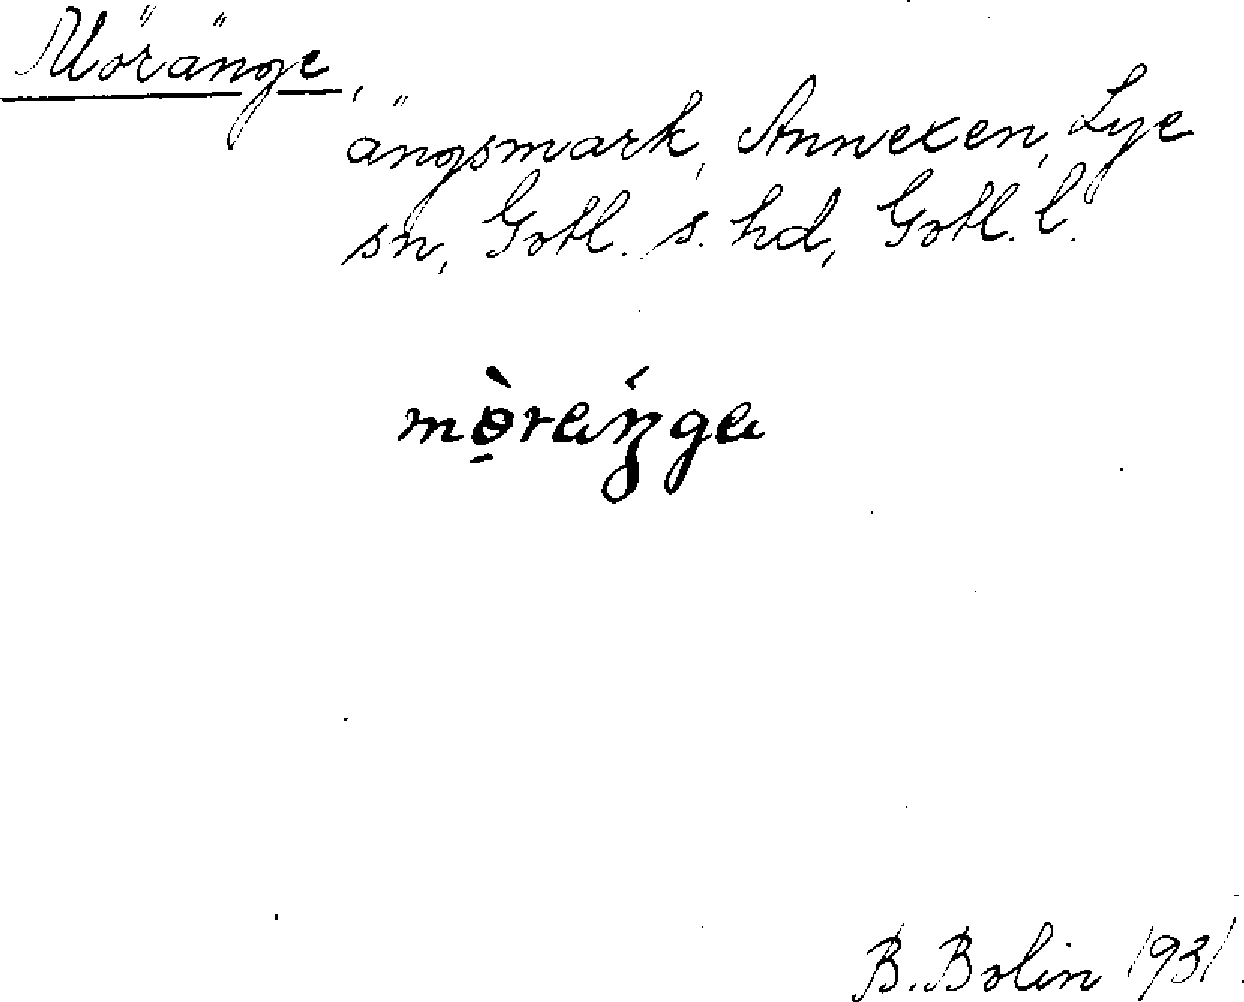 Möränge,
ängsmark, Annexen, Lye
sn, Gotl. s. hd, Gotl. l.
B. Bolin 1931.